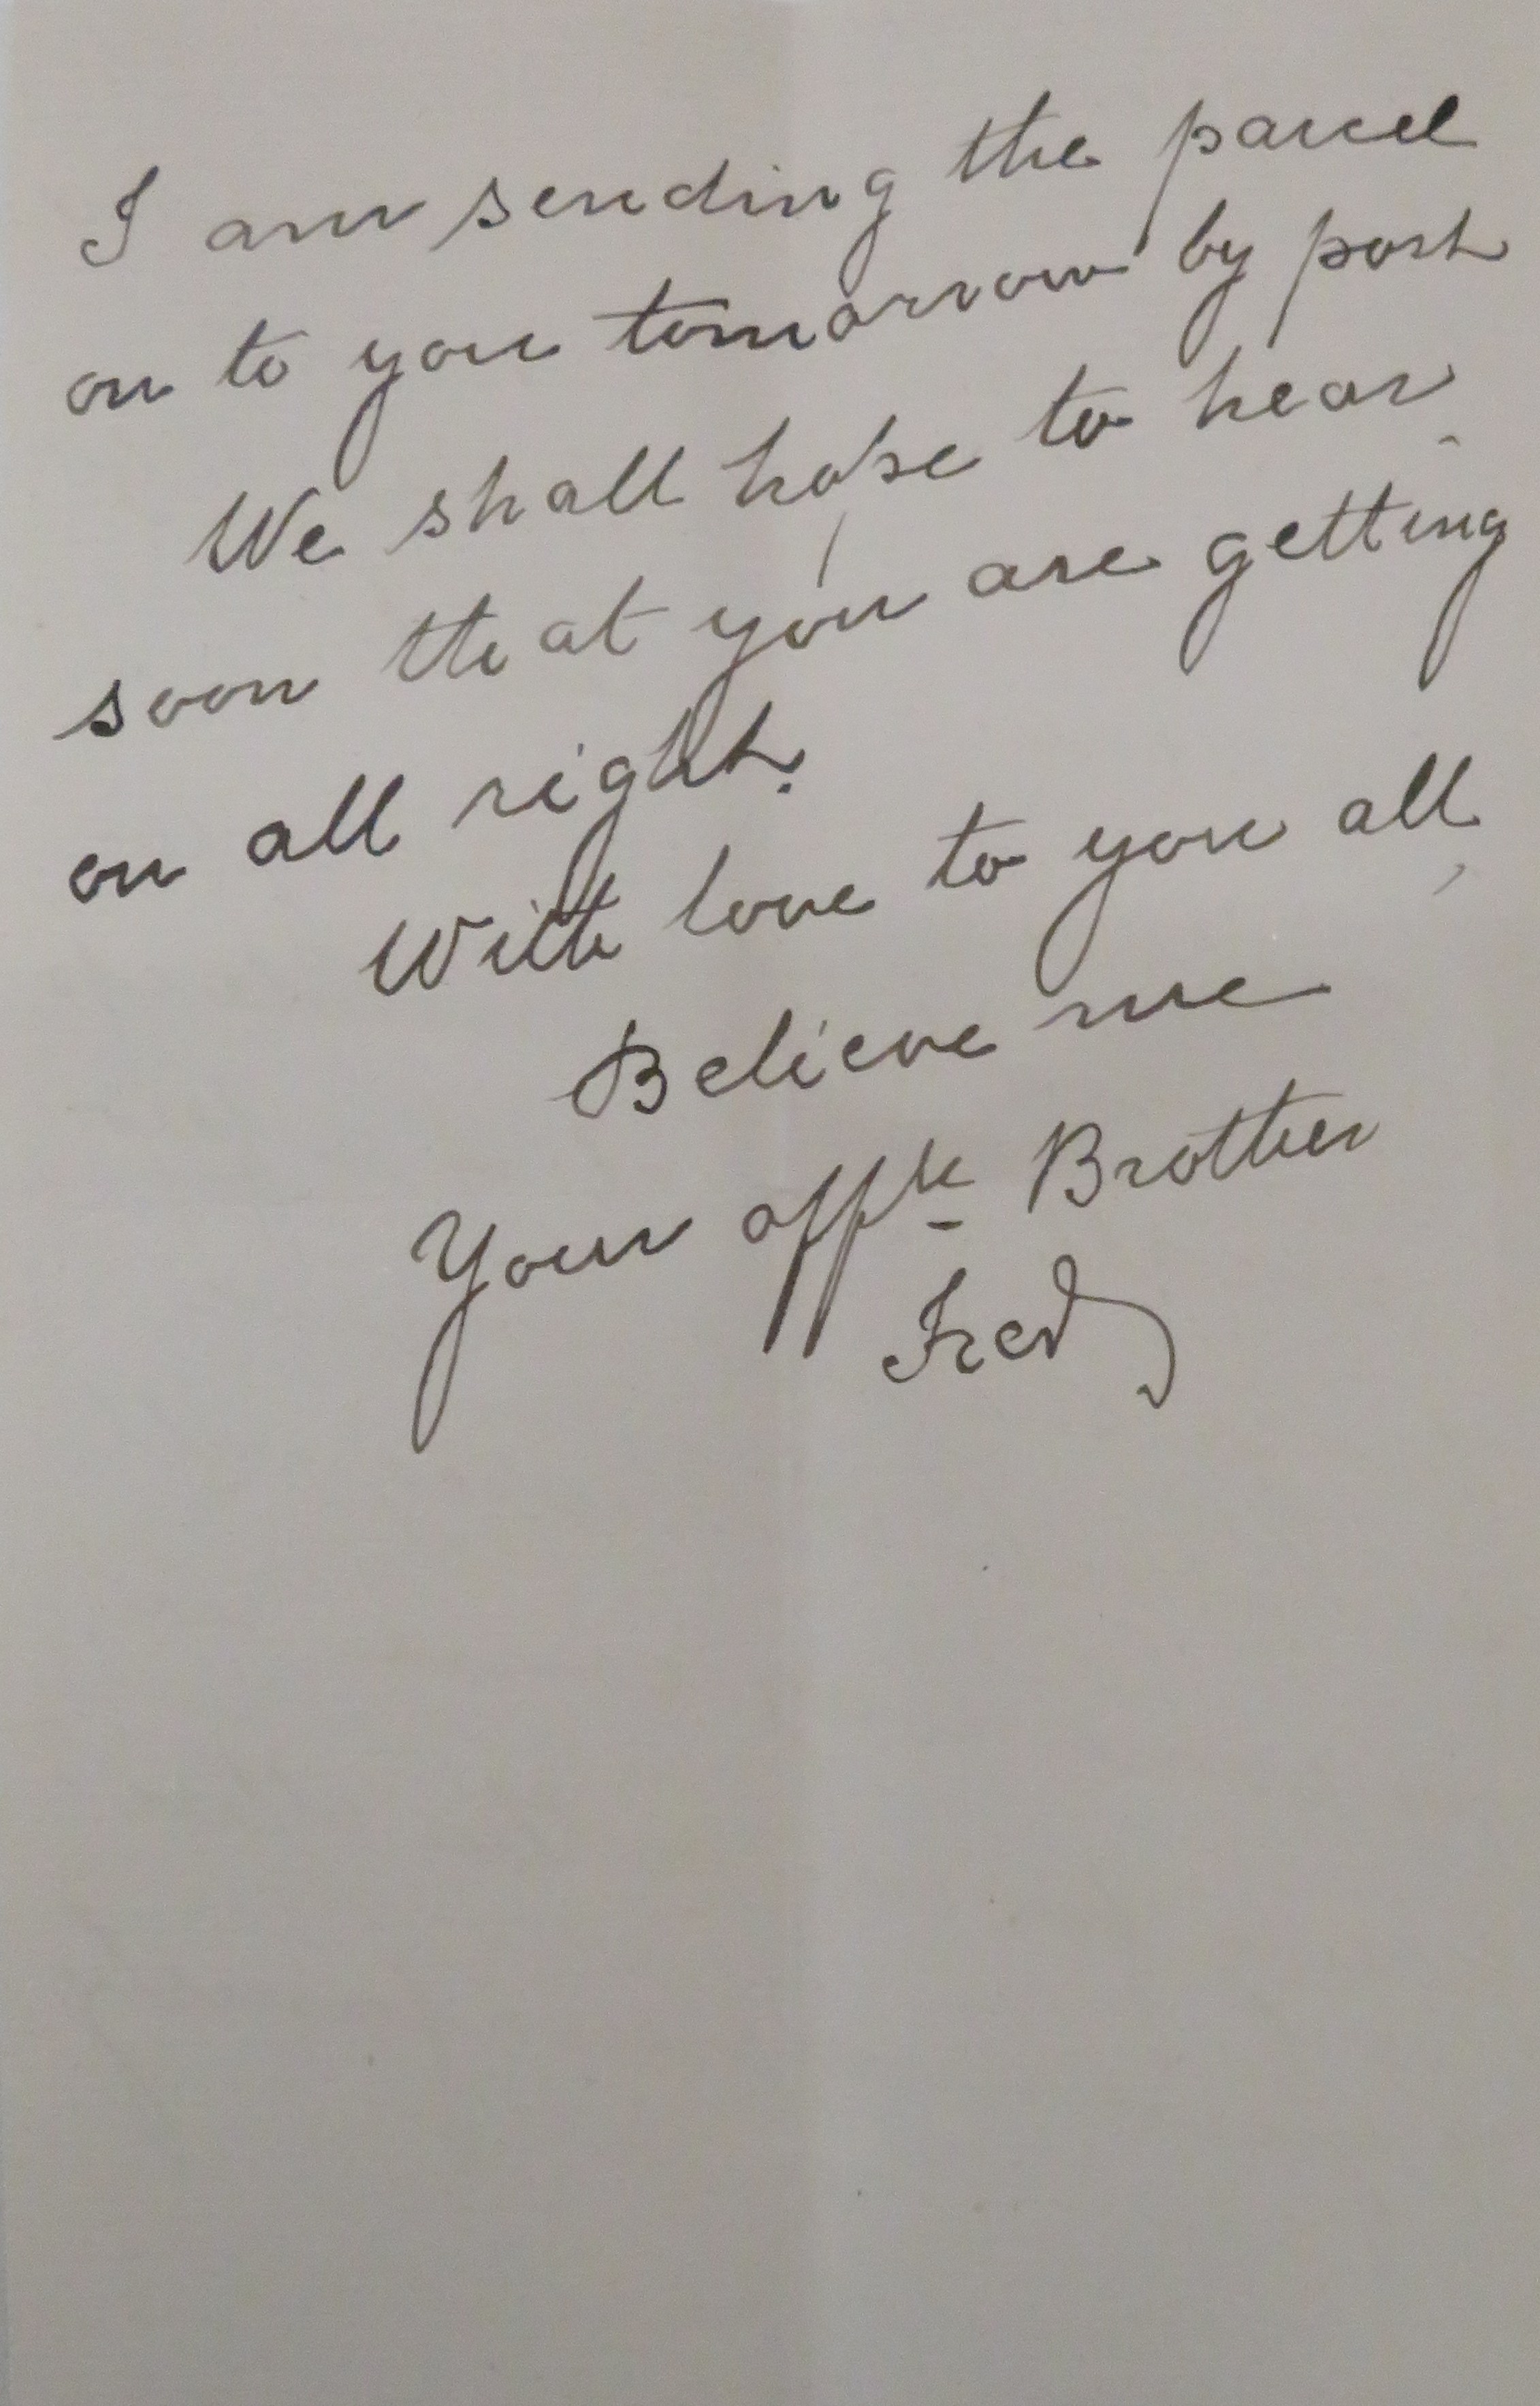 I am sending the parcel
on to you tomorrow by post
We shall hope to hear
soon that you are getting
on all right.
With love to you all,
Believe me
Your affte Brother
Fred